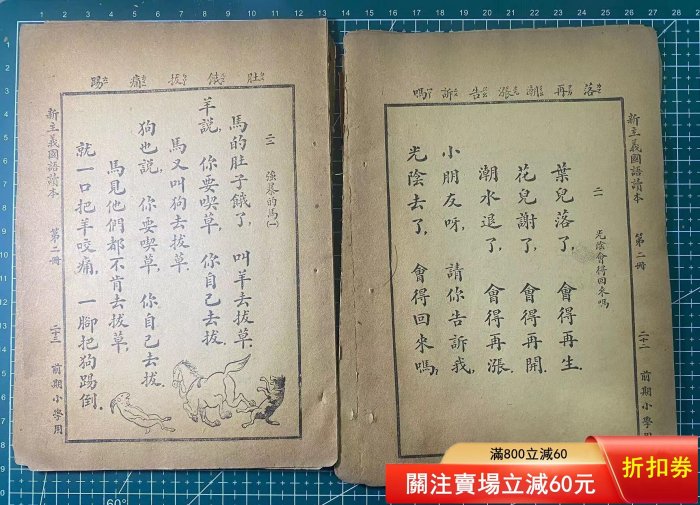 落再潮漲告訴嗎
新主義國語讀本 第二冊 二十一 前期小學用
二一 光陰會得回來嗎
葉兒落了，會得再生．
花兒謝了，會得再開．
潮水退了，會得再漲．
小朋友呀，請你告訴我，
光陰去了，會得回來嗎．
肚餓拔痛踢
二二 強暴的馬(一)
馬的肚子餓了，叫羊去拔草．
羊說，你要喫草，你自己去拔．
馬又叫狗去拔草．
狗也說，你要喫草，你自己去拔．
馬見他們都不肯去拔草，
就一口把羊咬痛，一腳把狗踢倒．
新主義國語讀本 第二冊 二十三 前期小學用
滿800立減60
關注賣場立減60元
折扣券